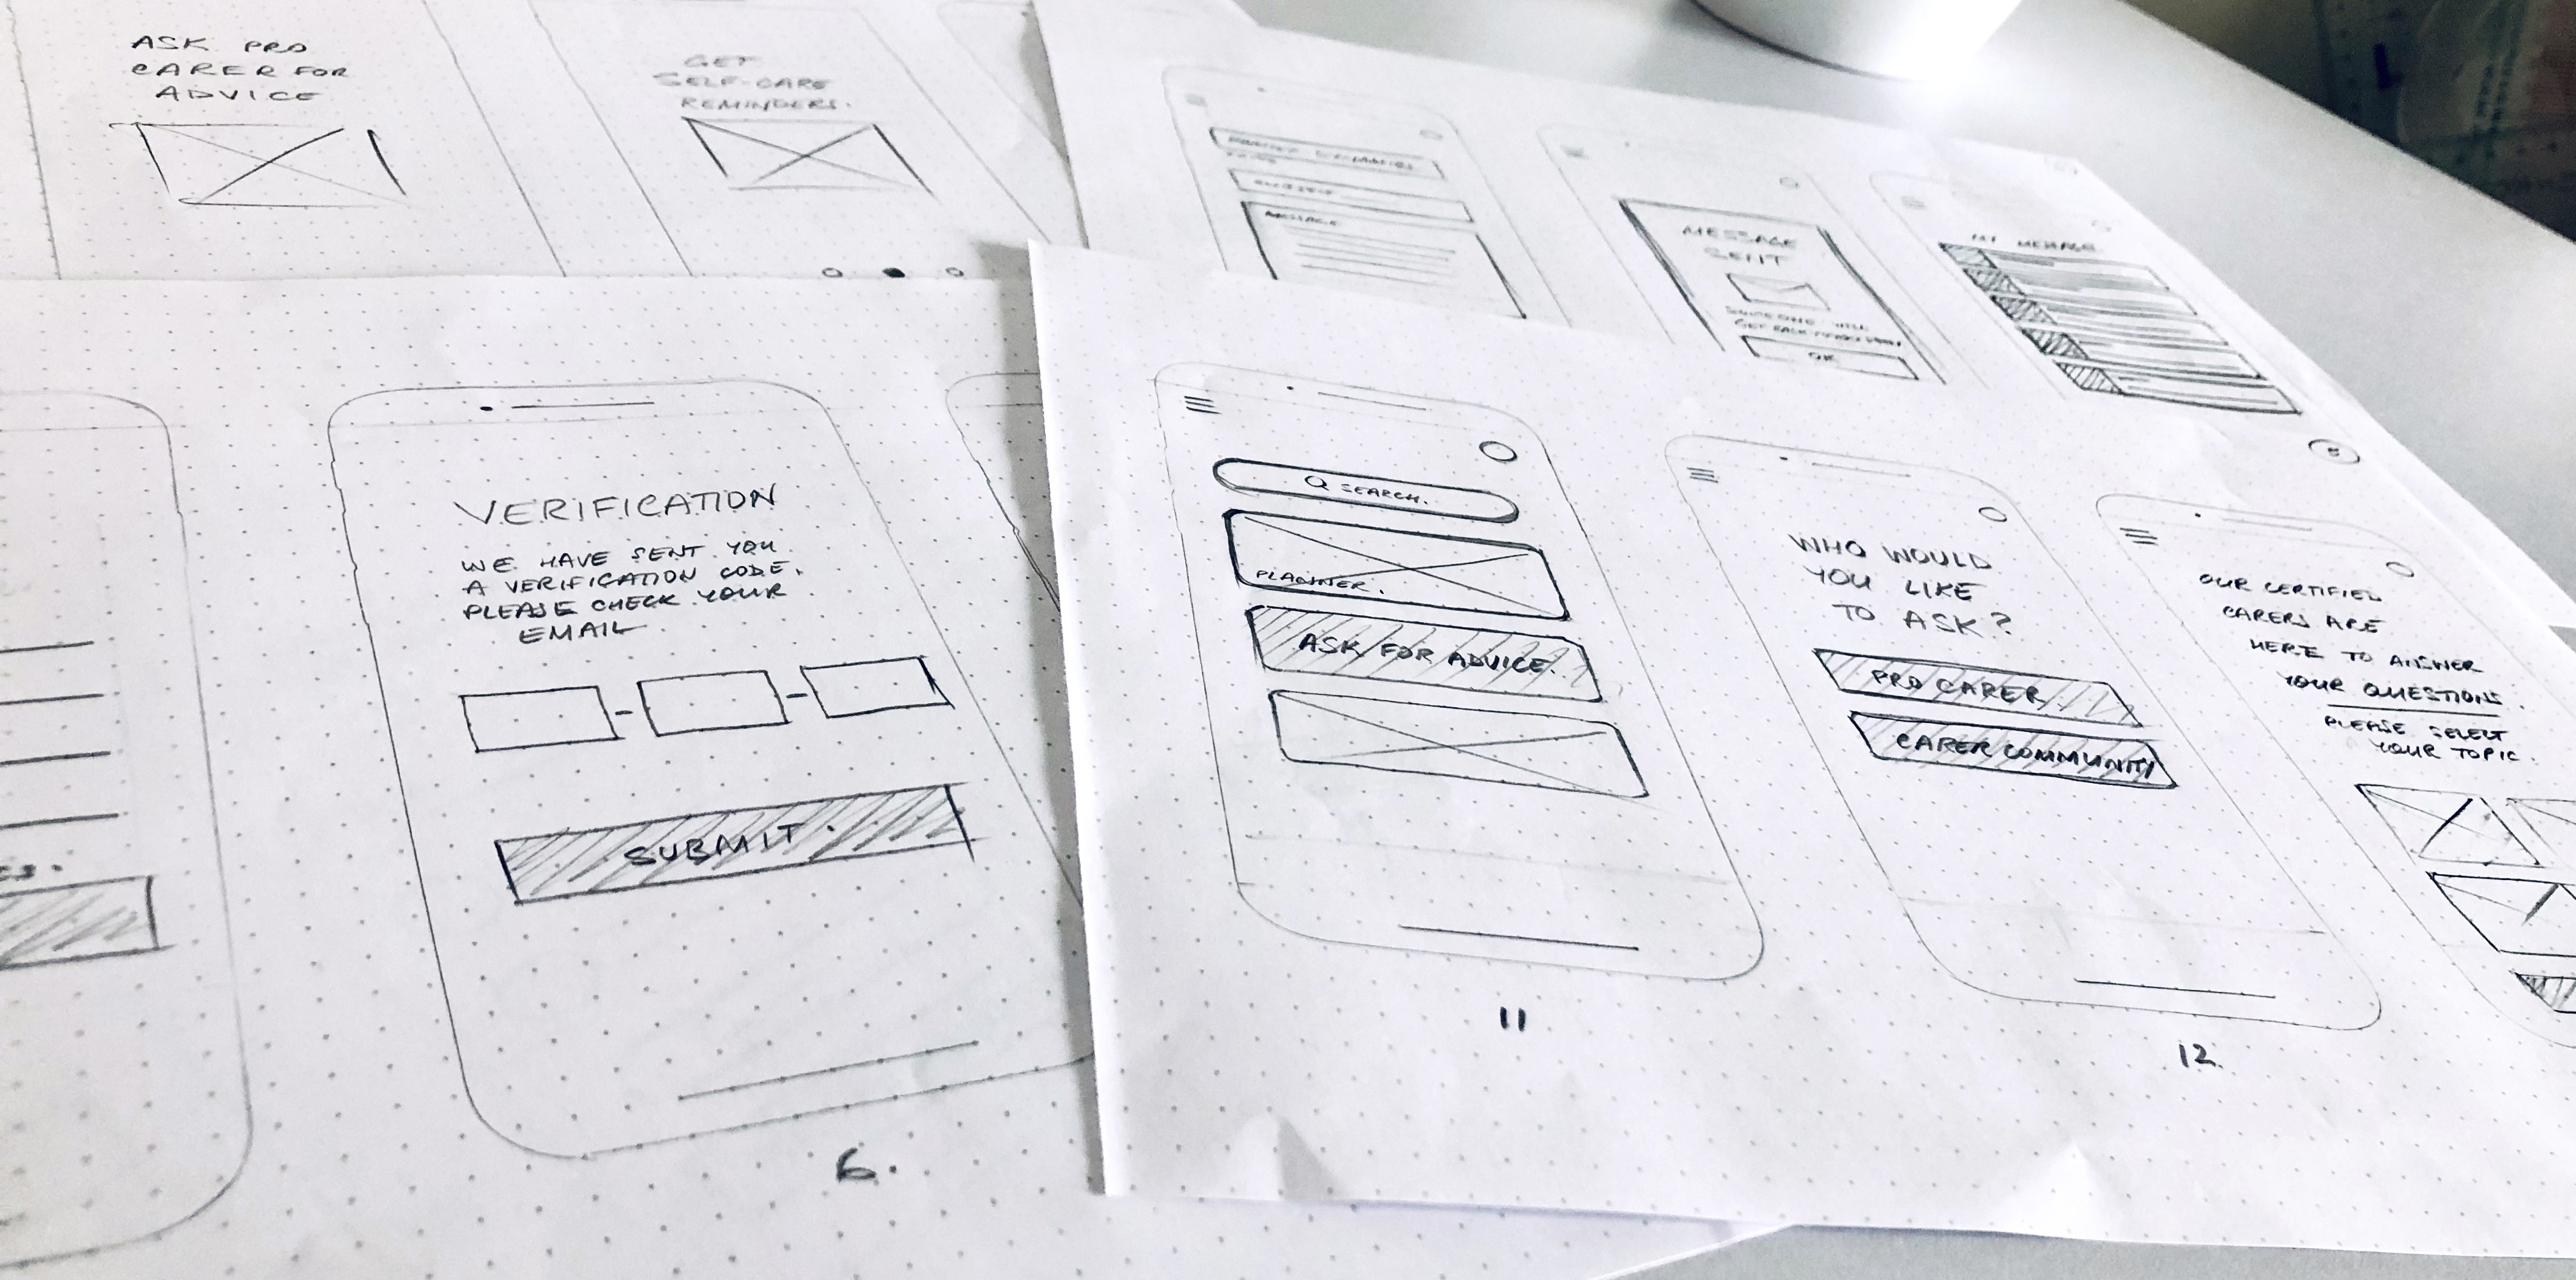 ASK PRO
CARER FOR
ADVICE
GET
SELF-CARE
REMINDERS.
MESSAGE
MESSAGE
SENT
SOMEONE WILL
OK
MY MESSAGE
VERIFICATION
WE HAVE SENT YOU
A VERIFICATION CODE.
PLEASE CHECK YOUR
EMAIL
SUBMIT.
6.
SEARCH.
PLANNER.
ASK FOR ADVICE.
11
WHO WOULD
YOU LIKE
TO ASK?
PRO CARER
CARER COMMUNITY
12.
OUR CERTIFIED
CARERS ARE
HERE TO ANSWER
YOUR QUESTIONS.
PLEASE SELECT
YOUR TOPIC.